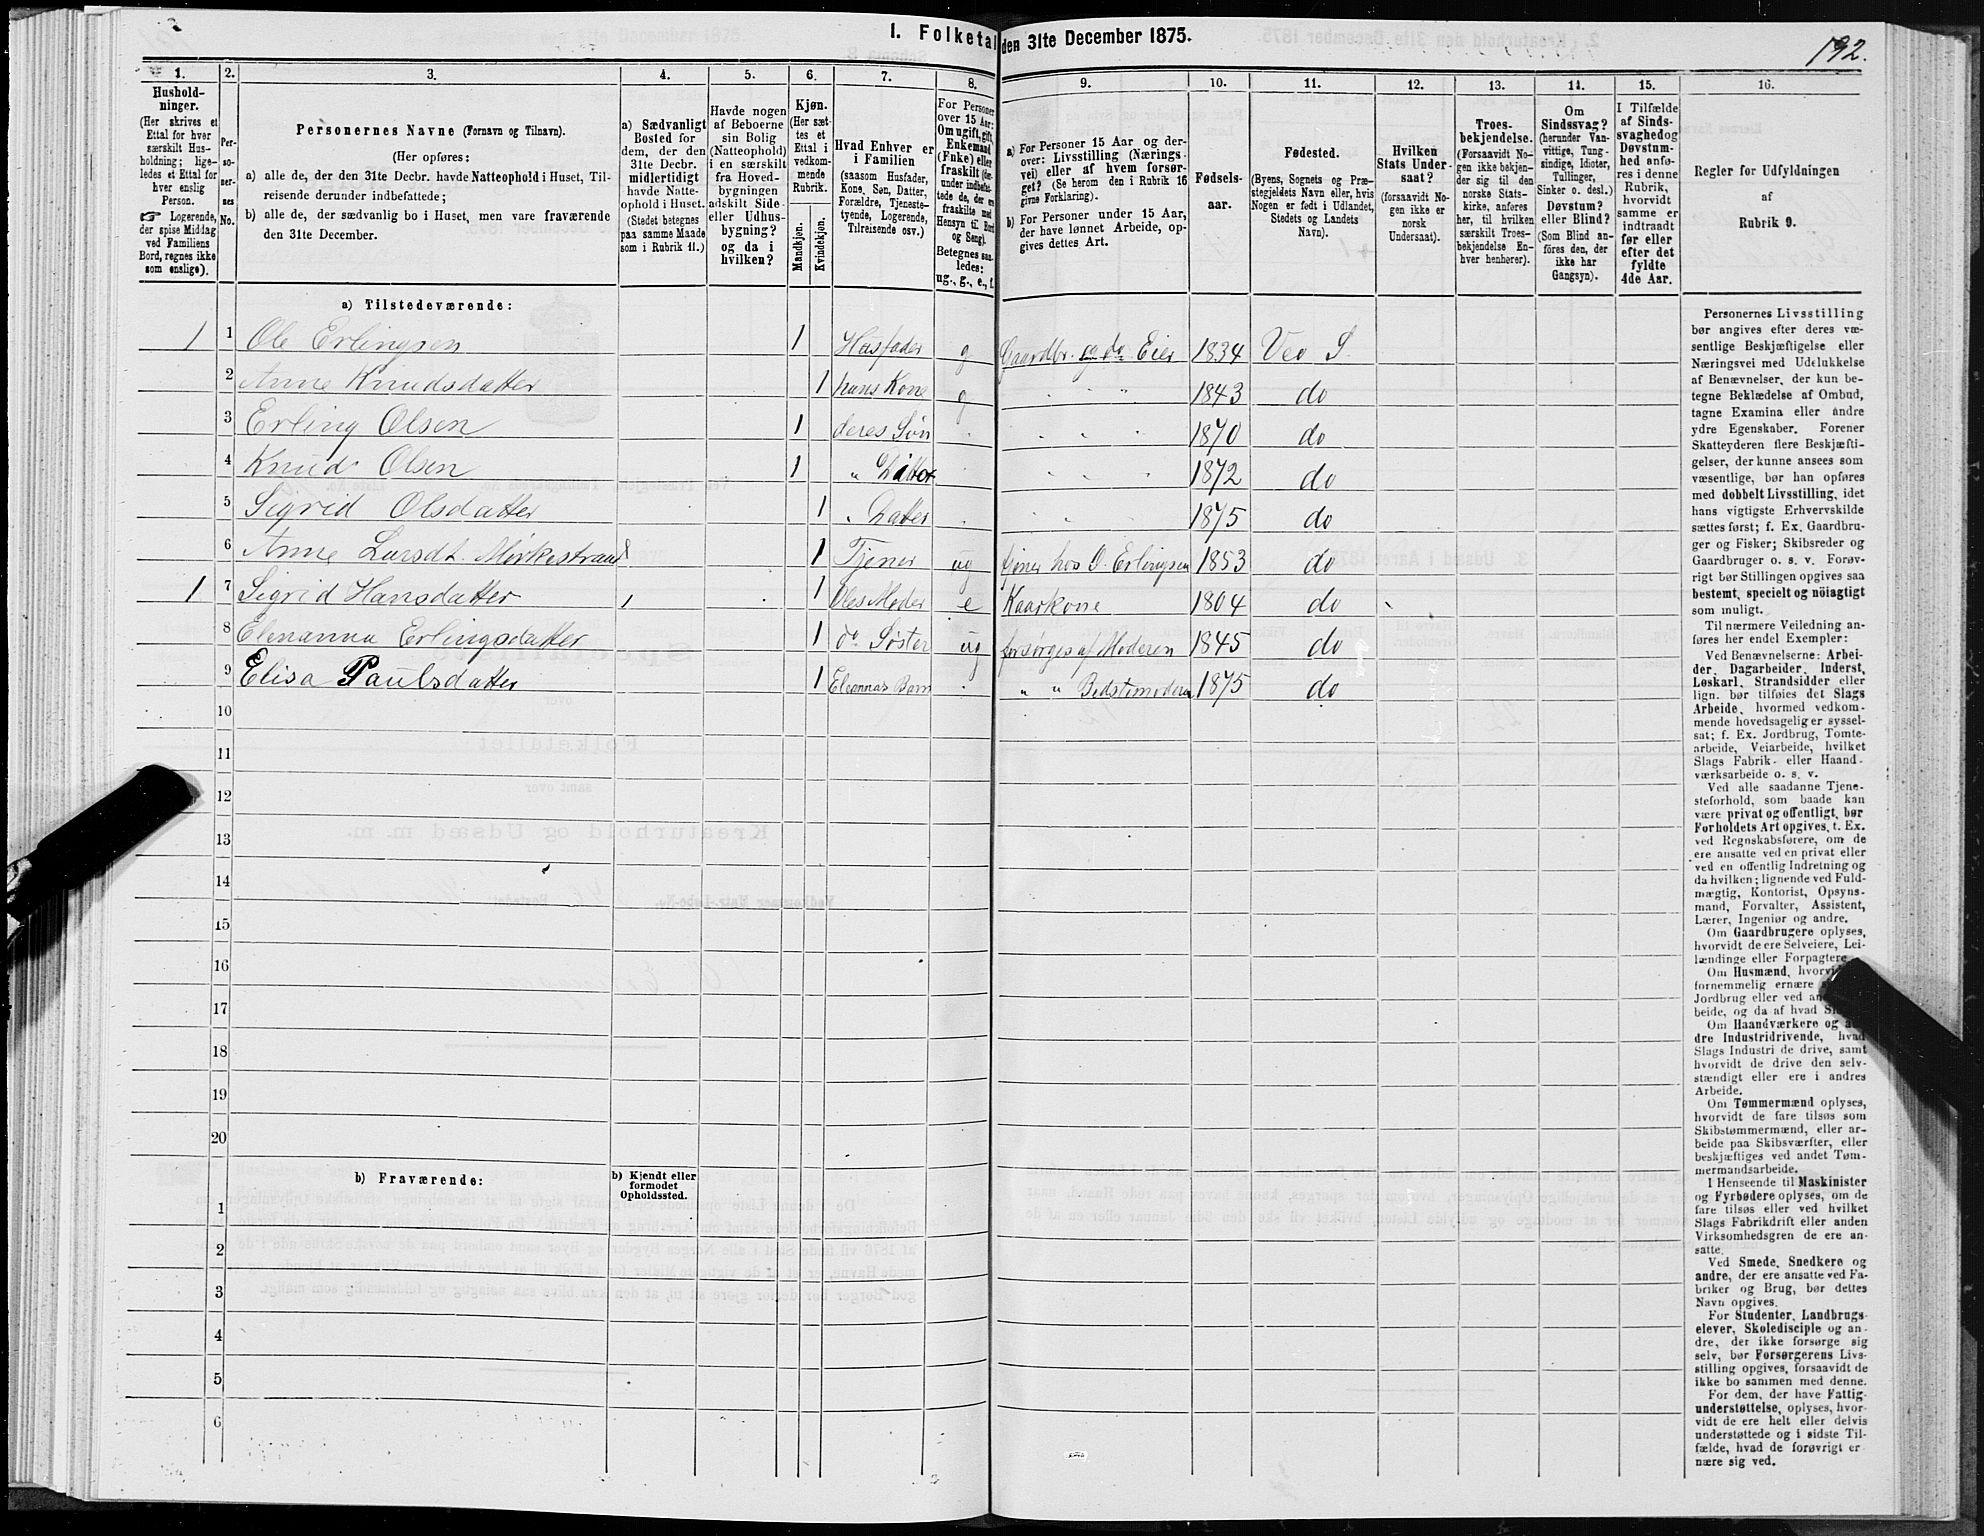 I. Folketal den 31te December 1875.
192.
1.
Hushold-
ninger.
(Her skrives et
Ettal for hver
særskilt Hus-
holdning; lige-
ledes et Ettal for
hver enslig
Person.
☞ Logerende,
der spise Middag
ved Familiens
Bord, regnes ikke
som enslige).
2.
Per-
so-
ner-
nes
No.
3.
Personernes Navne (Fornavn og Tilnavn).
(Her opføres:
a) alle de, der den 31te Decbr. havde Natteophold i Huset, Til-
reisende derunder indbefattede;
b) alle de, der sædvanlig bo i Huset, men vare fraværende
den 31te December.
4.
a) Sædvanligt
Bosted for
dem, der den
31te Decbr.
midlertidigt
havde Natte-
ophold i Huset.
(Stedet betegnes
paa samme Maade
som i Rubrik 11.)
5.
Havde nogen
af Beboerne
sin Bolig
(Natteophold)
i en særskilt
fra Hoved-
bygningen
adskilt Side-
eller Udhus-
bygning?
og da i
hvilken?
6.
Kjøn.
(Her sæt-
tes et
Ettal i
vedkom-
mende
Rubrik.
Mandkjøn.
Kvindekjøn.
7.
Hvad Enhver er
i Familien
(saasom Husfader,
Kone, Søn, Datter,
Forældre, Tjeneste-
tyende, Logerende,
Tilreisende osv.)
8.
For Personer
over 15 Aar:
Om ugift, gift,
Enkemand
(Enke) eller
fraskilt (der-
under indbefat-
tede de, der ere
fraskilte med
Hensyn til Bord
og Seng).
Betegnes saa-
ledes:
ug., g., e., f.
9.
a) For Personer 15 Aar og der-
over: Livsstilling (Nærings-
vei) eller af hvem forsør-
get? (Se herom den i Rubrik 16
givne Forklaring).
b) For Personer under 15 Aar,
der have lønnet Arbeide, op-
gives dettes Art.
10.
Fødsels-
aar.
11.
Fødested.
(Byens, Sognets og Præ-
stegjeldets Navn eller, hvis
Nogen er født i Udlandet,
Stedets og Landets
Navn).
12.
Hvilken
Stats Under-
saat?
(forsaavidt No-
gen ikke er
norsk
Undersaat).
13.
Troes-
bekjendelse.
(Forsaavidt No-
gen ikke bekjen-
der sig til den
norske Stats-
kirke, anføres
her, til hvilken
særskilt Troes-
bekjendelse En-
hver henhører).
14.
Om
Sindssvag?
(herunder Van-
vittige, Tung-
sindige, Idioter,
Tullinger,
Sinker o. desl.)
Døvstum?
eller Blind?
(Som Blind an-
føres den, der
ikke har
Gangsyn).
15.
I Tilfælde
af Sinds-
svaghed og
Døvstum-
hed anfø-
res i denne
Rubrik,
hvorvidt
samme er
indtraadt
før eller
efter det
fyldte
4de Aar.
16.
Regler for Udfyldningen
af
Rubrik 9.
a) Tilstedeværende:
1 1 Ole Erlingsen 1 Husfader g Gaardbr. og do Eier 1834 Veo S.
2 Anne Knudsdatter 1 hans Kone g " " 1843 do
3 Erling Olsen 1 deres Søn " " " 1870 do
4 Knud Olsen 1 " " " 1872 do
5 Sigrid Olsdatter 1 " Datter " " 1875 do
6 Anne Larsdt. Mørkestrand 1 Tjener ug tjener hos O. Erlingsen 1853 do
1 7 Sigrid Hansdatter 1 Oles Moder e Kaarkone 1804 do
8 Elenanna Erlingsdatter 1 do Søster ug forsørges af Moderen 1845 do
9 Elisa Paulsdatter 1 Eleannas Barn " " Bedstemoderen 1875 do
10
11
12
13
14
15
16
17
18
19
20
b) Fraværende:
b) Kjendt eller
formodet
Opholdssted.
1
2
3
4
5
6
Personernes Livsstilling
bør angives efter deres væ-
sentlige Beskjæftigelse eller
Næringsvei med Udelukkelse
af Benævnelser, der kun be-
tegne Beklædelse af Ombud,
tagne Examina eller andre
ydre Egenskaber. Forener
Skatteyderen flere Beskjæfti-
gelser, der kunne ansees som
væsentlige, bør han opføres
med dobbelt Livsstilling, idet
hans vigtigste Erhvervskilde
sættes først; f. Ex. Gaardbru-
ger og Fisker; Skibsreder og
Gaardbruger o. s. v. Forøv-
rigt bør Stillingen opgives saa
bestemt, specielt og nøiagtigt
som muligt.
Til nærmere Veiledning an-
føres her endel Exempler:
Ved Benævnelserne: Arbei-
der, Dagarbeider, Inderst,
Løskarl, Strandsidder eller
lign. bør tilføies det Slags
Arbeide, hvormed vedkom-
mende hovedsagelig er syssel-
sat; f. Ex. Jordbrug, Tomte-
arbeide, Veiarbeide, hvilket
Slags Fabrik- eller Haand-
værksarbeide o. s. v.
Ved alle saadanne Tjene-
steforhold, som baade kan
være privat og offentligt, bør
Forholdets Art opgives, t. Ex.
ved Regnskabsførere, om de
ere ansatte ved en privat eller
ved en offentlig Indretning og
da hvilken; lignende ved Fuld-
mægtig, Kontorist, Opsyns-
mand, Forvalter, Assistent,
Lærer, Ingeniør og andre.
Om Gaardbrugere oplyses,
hvorvidt de ere Selveiere, Lei-
lændinge eller Forpagtere.
Om Husmænd, hvorvidt
fornemmelig ernære
Jordbrug eller ved
beide, og da af hvad
Om Haandværkere og an-
dre Industridrivende, hvad
Slags Industri de drive, samt
hvorvidt de drive den selv-
stændigt eller ere i andres
Arbeide.
Om Tømmermænd oplyses,
hvorvidt de fare tilsøs som
Skibstømmermænd, eller ar-
beide paa Skibsværfter, eller
beskjæftiges ved andet Tøm-
mermandsarbeide.
I Henseende til Maskinister
og Fyrbødere oplyses, om de
fare tilsøs eller ved hvilket
Slags Fabrikdrift eller anden
Virksomhedsgren de ere an-
satte.
Ved Smede, Snedkere og
andre, der ere ansatte ved Fa-
briker og Brug, bør dettes
Navn opgives.
For Studenter, Landbrugs-
elever, Skoledisciple og an-
dre, der ikke forsørge sig
selv, bør Forsørgerens Livs-
stilling opgives, forsaavidt de
ikke bo sammen med denne.
For dem, der have Fattig-
understøttelse, oplyses, hvor-
vidt de ere helt eller delvis
understøttede og i sidste Til-
fælde, hvad de forøvrigt er-
nære sig ved.